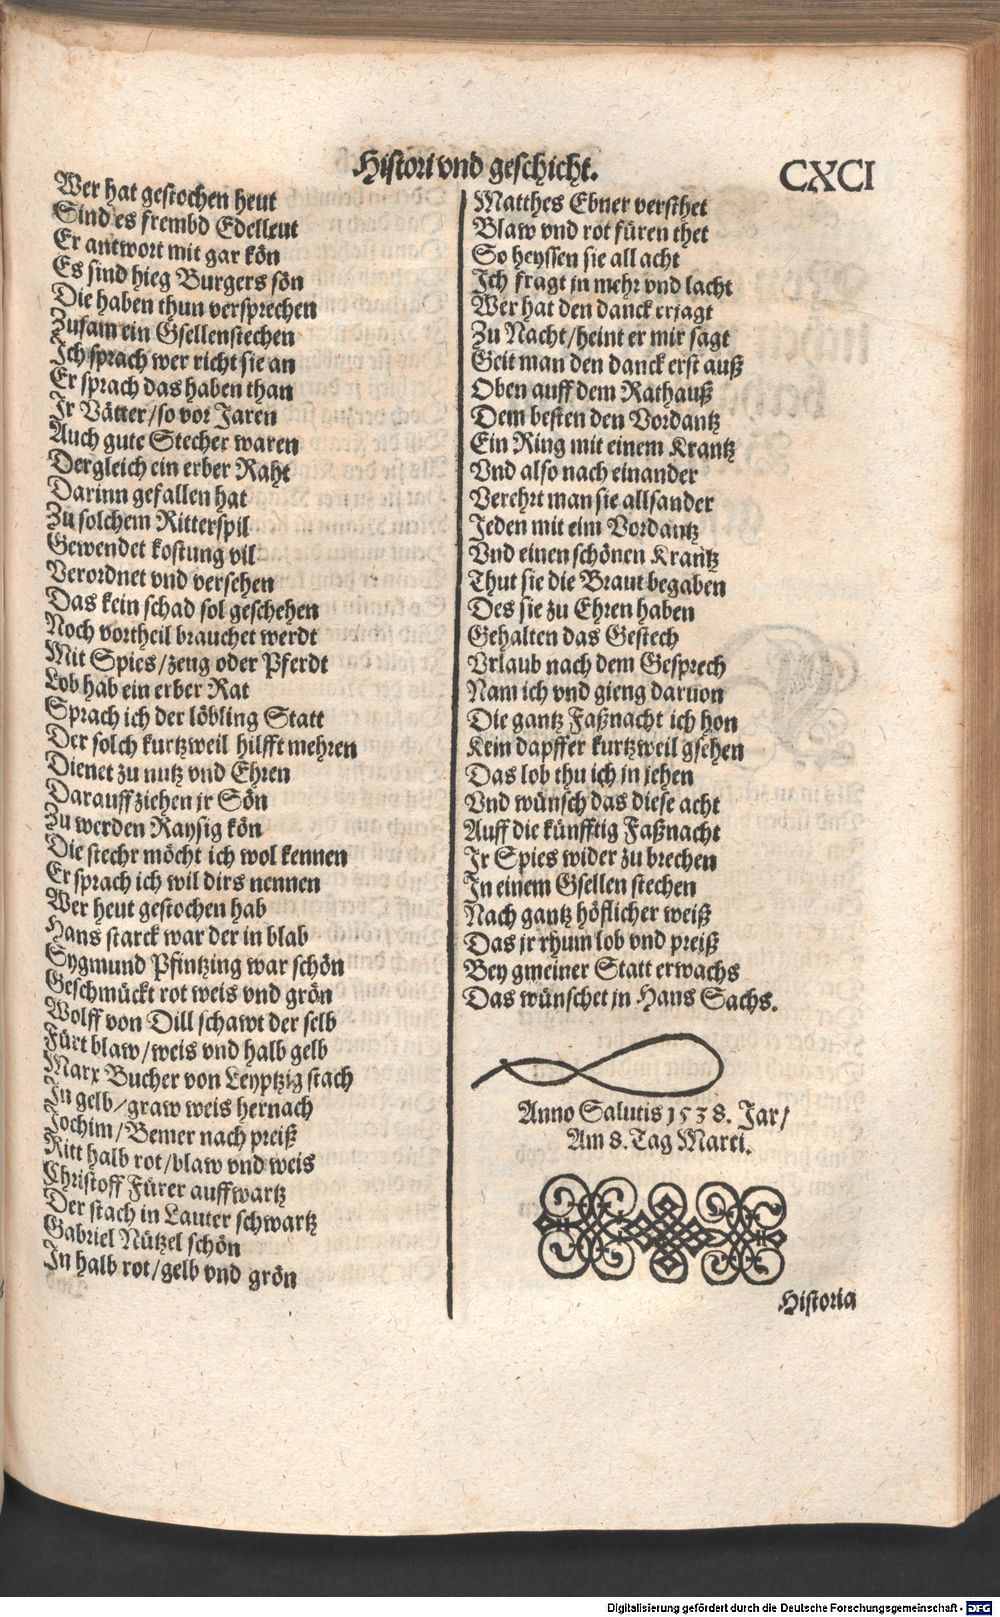 Histori vnd geschicht.
CXCI
Wer hat gestochen heut
Sind es frembd Edelleut
Er antwort mit gar kön
Es sind hieg Burgers sön
Die haben thun versprechen
Zusam ein Gsellenstechen
Ich sprach wer richt sie an
Er sprach das haben than
Jr Vätter/so vor Jaren
Auch gute Stecher waren
Dergleich ein erber Raht
Darinn gefallen hat
Zu solchem Ritterspil
Gewendet kostung vil
Verordnet vnd versehen
Das kein schad sol geschehen
Noch vortheil brauchet werdt
Mit Spies/zeug oder Pferdt
Lob hab ein erber Rat
Sprach ich der löbling Statt
Der solch kurtzweil hilfft mehren
Dienet zu nutz vnd Ehren
Darauff ziehen jr Sön
Zu werden Raysig kön
Die stechr möcht ich wol kennen
Er sprach ich wil dirs nennen
Wer heut gestochen hab
Hans starck war der in blab
Sygmund Pfintzing war schön
Geschmückt rot weis vnd grön
Wolff von Dill schawt der selb
Fürt blaw/weis vnd halb gelb
Marx Bucher von Leyptzig stach
In gelb/graw weis hernach
Jochim/Bemer nach preiß
Ritt halb rot/blaw vnd weis
Christoff Fürer auffwartz
Der stach in Lauter schwartz
Gabriel Nützel schön
In halb rot/gelb vnd grön
Matthes Ebner versthet
Blaw vnd rot füren thet
So heyssen sie all acht
Ich fragt jn mehr vnd lacht
Wer hat den danck erjagt
Zu Nacht/heint er mir sagt
Geit man den danck erst auß
Oben auff dem Rathauß
Dem besten den Vordantz
Ein Ring mit einem Krantz
Vnd also nach einander
Verehrt man sie allsander
Jeden mit eim Vordantz
Vnd einen schönen Krantz
Thut sie die Braut begaben
Des sie zu Ehren haben
Gehalten das Gestech
Vrlaub nach dem Gesprech
Nam ich vnd gieng daruon
Die gantz Faßnacht ich hon
Kein dapffer kurtzweil gsehen
Das lob thu ich jn jehen
Vnd wünsch das diese acht
Auff die künfftig Faßnacht
Jr Spies wider zu brechen
In einem Gsellen stechen
Nach gantz höflicher weiß
Das jr rhum lob vnd preiß
Bey gmeiner Statt erwachs
Das wünschet jn Hans Sachs.
Anno Salutis 1538. Jar/
Am 8. Tag Marci.
Historia
Digitalisierung gefördert durch die Deutsche Forschungsgemeinschaft - DFG